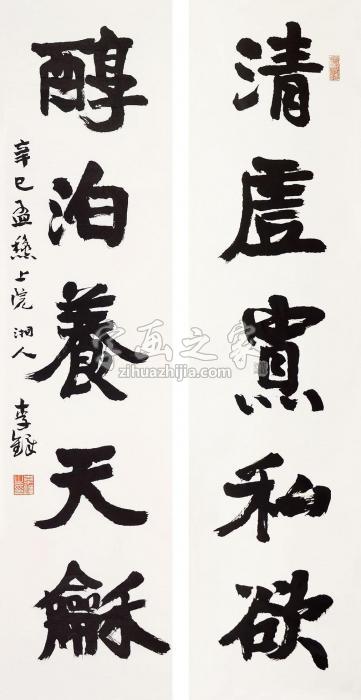 清虛寡私欲
醇泊養天龢
辛巳孟穐上浣湘人李鐸
字画之家
zihuazhijia.com